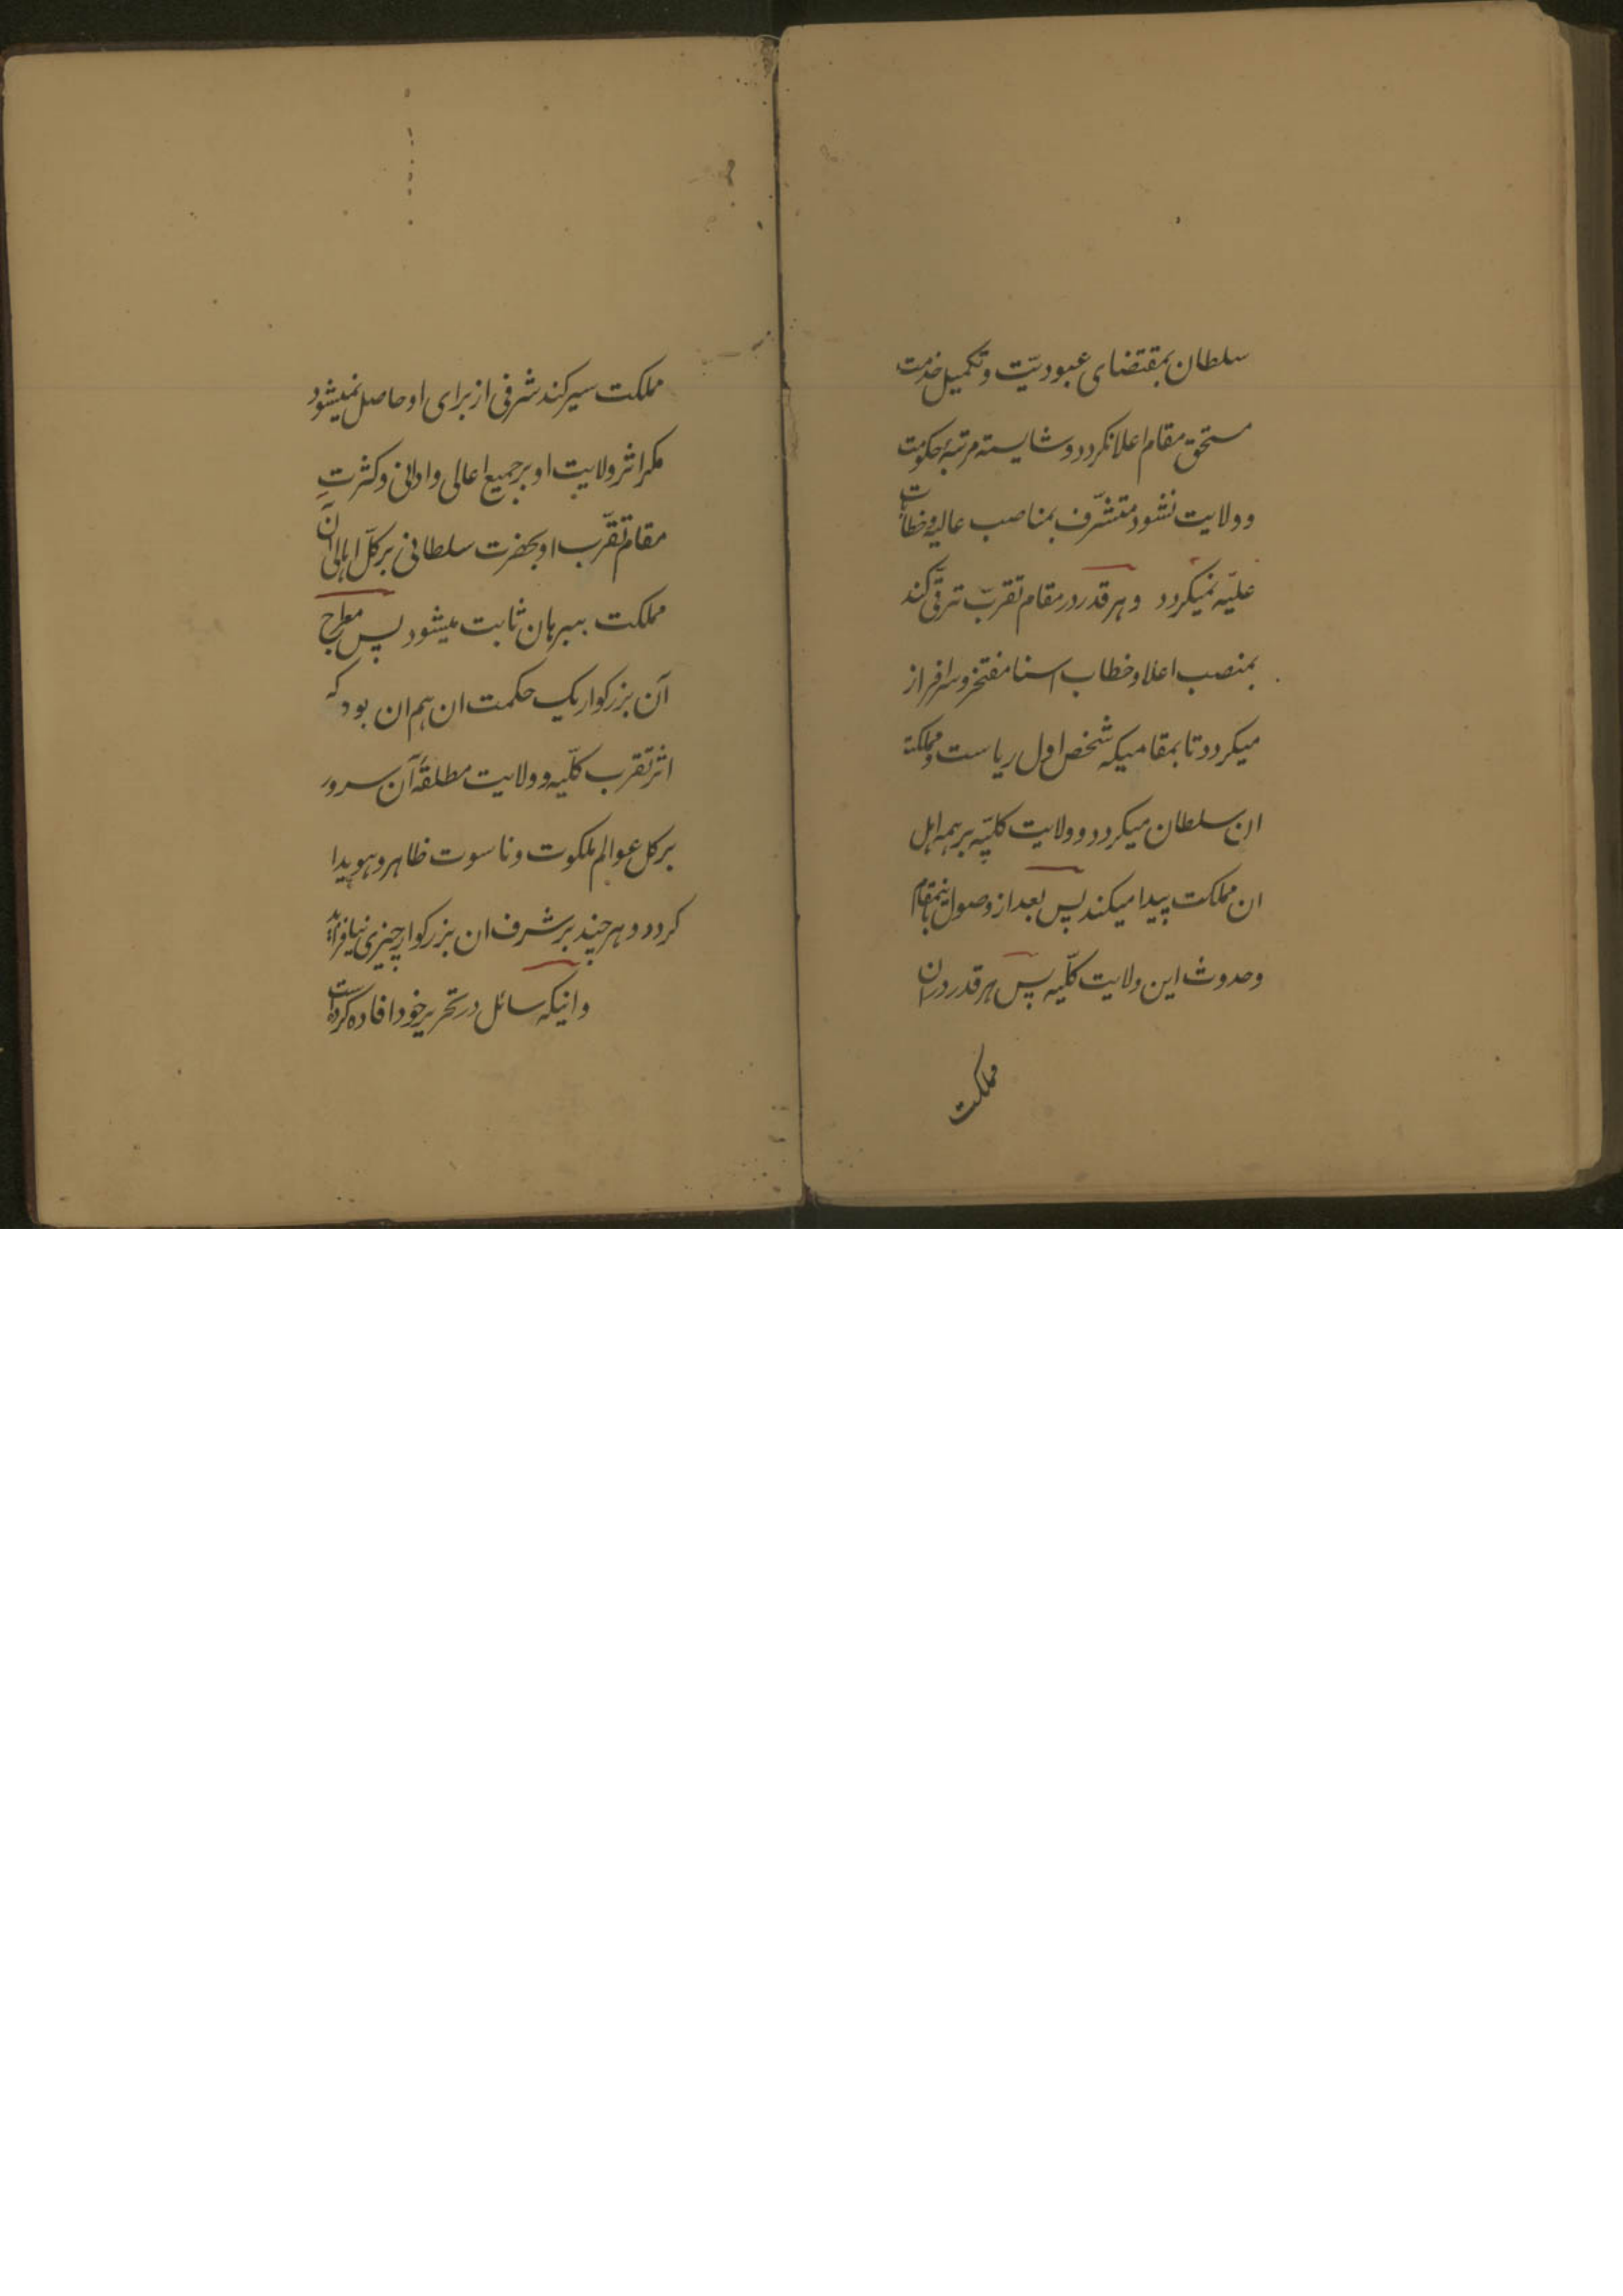 سلطان بمقتضای عبودیّت و تکمیل خدمت
مستحق مقام اعلا نکردد و شایسته مرتبهٔ حکومت
و ولایت نشود متشرّف بمناصب عالیه و خطابات
علیّه نمیکردد و هر قدر در مقام تقرّب ترقّی کند
بمنصب اعلا و خطاب اسنا مفتخر و سرافراز
میکردد تا بمقامیکه شخص اول ریاست و مملکت
ان سلطان میکردد و ولایت کلیّه بر همه اهل
ان مملکت پیدا میکند پس بعد از وصول باینمقام
و حدوث این ولایت کلّیه پس هر قدر در ان
مملکت
مملکت سیر کند شرفی از برای او حاصل نمیشود
مکر اثر ولایت او بر جمیع اعالی و ادانی و کثرتِ
مقام تقرّب او بحضرت سلطانی بر کلّ اهالی آن
مملکت ببرهان ثابت میشود پس معراج
آن بزرکوار یک حکمت ان هم ان بود که
اثر تقرب کلّیه و ولایت مطلقهٔ آن سرور
بر کل عوالم ملکوت و ناسوت ظاهر و هویدا
کردد و هر چند بر شرف ان بزرکوار چیزی نیافزاید
و اینکه سائل در تحریر خود افاده کرده است